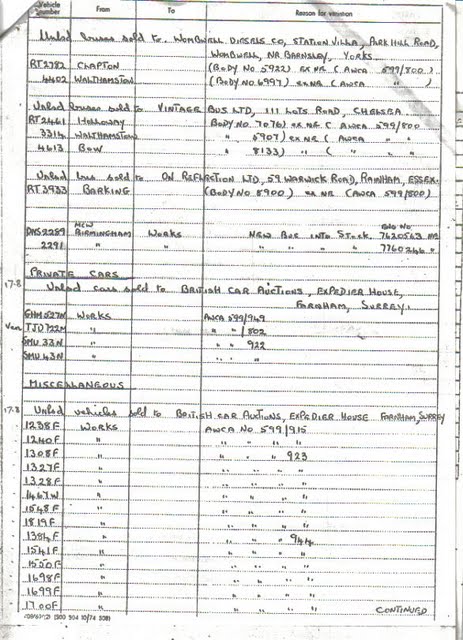 Vehicle Number From To Reason for variation
Unlicd buses sold to WOMBWELL DIESELS CO, STATION VILLA, PARK HILL ROAD,
WOMBWELL, NR BARNSLEY, YORKS.
RT2782 CLAPTON (BODY NO 5922) EX NR (AWCA 599/800)
4402 WALTHAMSTOW (BODY NO 6997) EX NR (AWCA " )
Unlicd buses sold to VINTAGE BUS LTD, 111 LOTS ROAD, CHELSEA
RT2461 HOLLOWAY BODY NO 7076) EX NR (AWCA 599/800
3314 WALTHAMSTOW " 5907) EX NR (AWCA " "
4613 BOW " 8133) " ( " "
Unlicd bus sold to ON REFLECTION LTD, 59 WARWICK ROAD, RAINHAM, ESSEX.
RT3933 BARKING (BODY NO 8900) EX NR (AWCA 599/800)
MCW ENG NO
DMS2289 BIRMINGHAM WORKS NEW BUS INTO STOCK 7620563
2291 " " " " " " 7760246 "
PRIVATE CARS
17-8 Unlicd cars sold to BRITISH CAR AUCTIONS, EXPEDIER HOUSE,
FARNHAM, SURREY.
GHM527N WORKS AWCA 599/949
Van TJD722M " " " /802
SMU 33N " " " 922
SMU 43N " " " "
MISCELLANEOUS
17-8 Unlicd vehicles sold to BRITISH CAR AUCTIONS, EXPEDIER HOUSE FARNHAM, SURREY
1238F WORKS AWCA NO 599/915
1240F " " " " "
1308F " " " " 923
1327F " " " " "
1328F " " " " "
1467W " " " " "
1548F " " " " "
1819F " " " " "
1384F " " " " 944
1541F " " " " "
1550F " " " " "
1698F " " " " "
1699F " " " " "
1700F " " " " "
CONTINUED